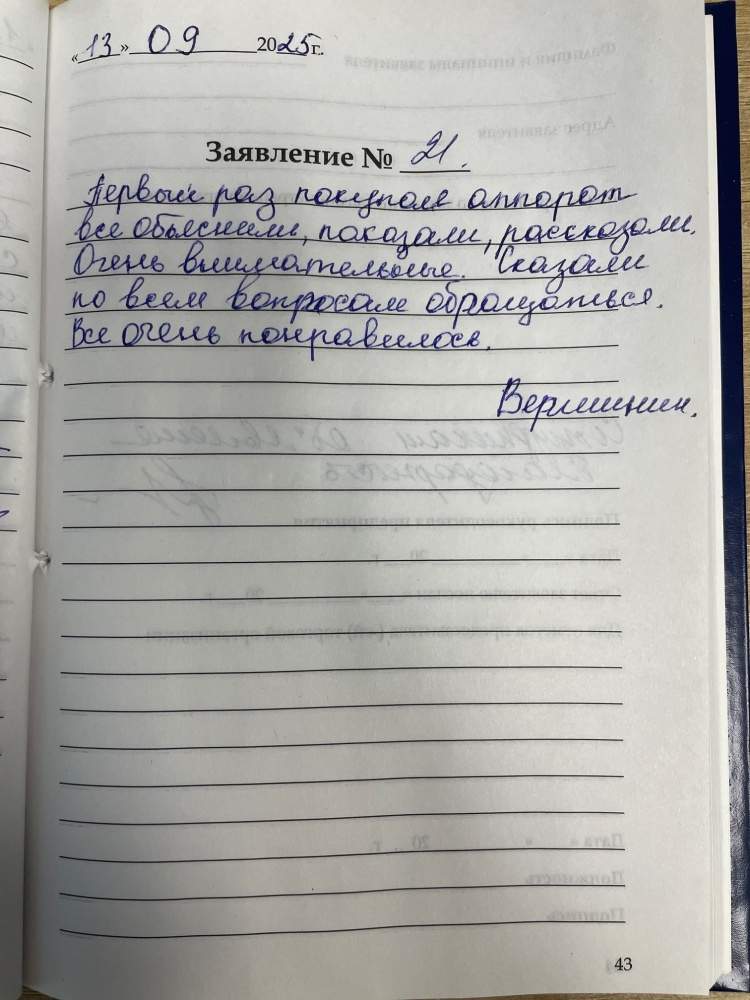 «13» 09 2025г.
Заявление № 21.
Первый раз покупали аппарат
все объяснили, показали, рассказали.
Очень внимательные. Сказали
по всем вопросам обращаться.
Все очень понравилось.
Вершинин.
43